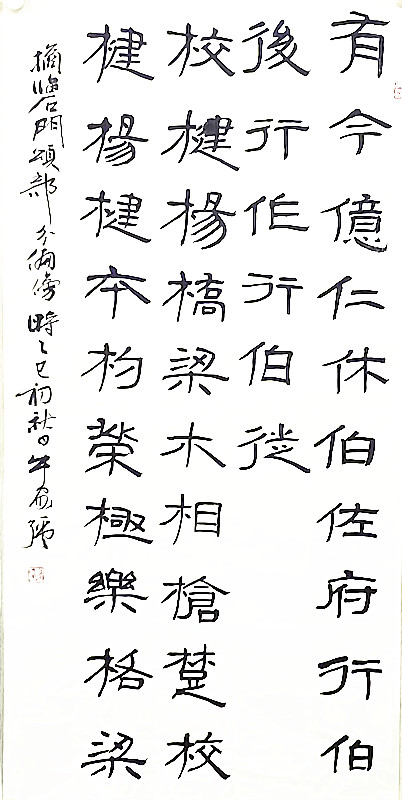 有今億仁休伯佐府行伯
後行作行伯徙
校楗楊橋梁木相槍楚校
楗楊楗本杓榮極樂格梁
摘臨石門頌部分偏傍時乙巳初秋日午